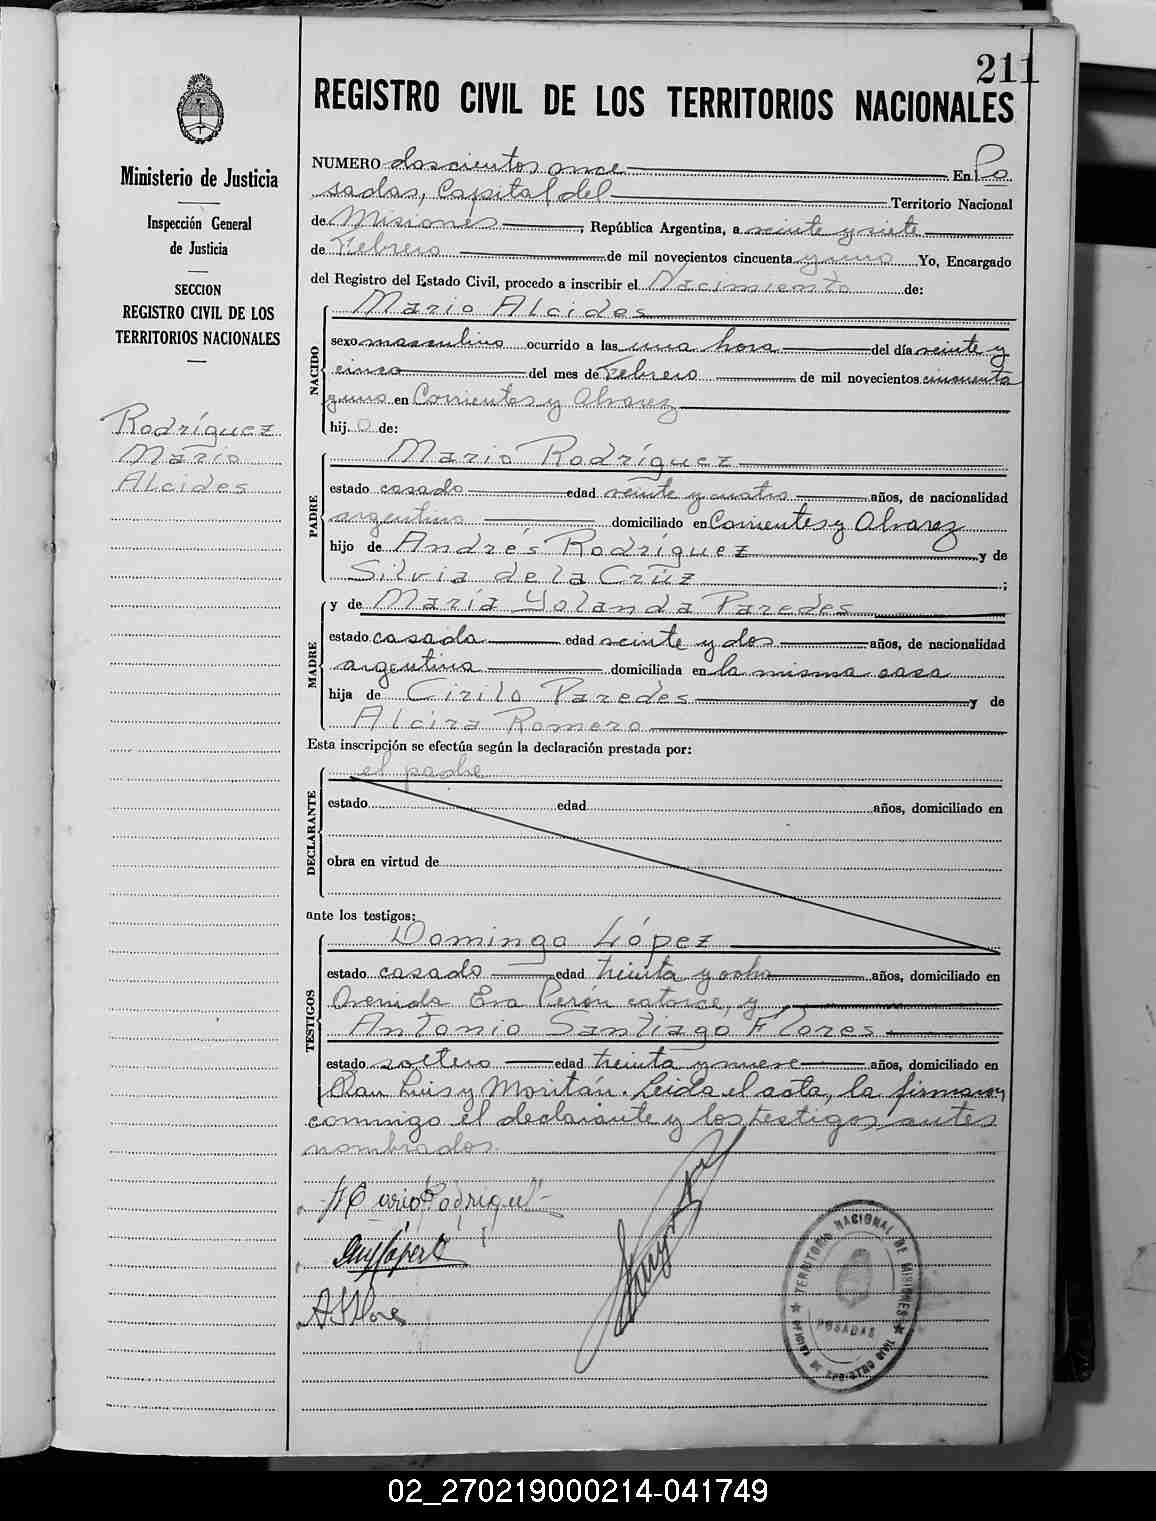 211
REGISTRO CIVIL DE LOS TERRITORIOS NACIONALES
Ministerio de Justicia
Inspección General
de Justicia
SECCION
REGISTRO CIVIL DE LOS
TERRITORIOS NACIONALES
Rodríguez
Mario
Alcides
NUMERO doscientos once En Po
sadas, Capital del Territorio Nacional
de Misiones, República Argentina, a veinte y siete
de Febrero de mil novecientos cincuenta y uno Yo, Encargado
del Registro del Estado Civil, procedo a inscribir el Nacimiento de:
NACIDO
Mario Alcides
sexo masculino ocurrido a las una hora del día veinte y
cinco del mes de Febrero de mil novecientos cincuenta
y uno en Corrientes y Alvarez
hij.o de:
PADRE
Mario Rodríguez
estado casado edad veinte y cuatro años, de nacionalidad
argentino domiciliado en Corrientes y Alvarez
hijo de Andrés Rodríguez y de
Silvia de la Cruz ;
MADRE
y de María Yolanda Paredes
estado casada edad veinte y dos años, de nacionalidad
argentina domiciliada en la misma casa
hija de Cirilo Paredes y de
Alcira Romero
Esta inscripción se efectúa según la declaración prestada por:
DECLARANTE
el padre
estado edad años, domiciliado en
obra en virtud de
ante los testigos:
TESTIGOS
Domingo López
estado casado edad treinta y ocho años, domiciliado en
Avenida Eva Perón catorce, y
Antonio Santiago Flores
estado soltero edad treinta y nueve años, domiciliado en
San Luis y Moritán. Leída el acta, la firman
conmigo el declarante y los testigos antes
nombrados.
Mario Rodriguez
A S Flores
TERRITORIO NACIONAL DE MISIONES
POSADAS
02_270219000214-041749